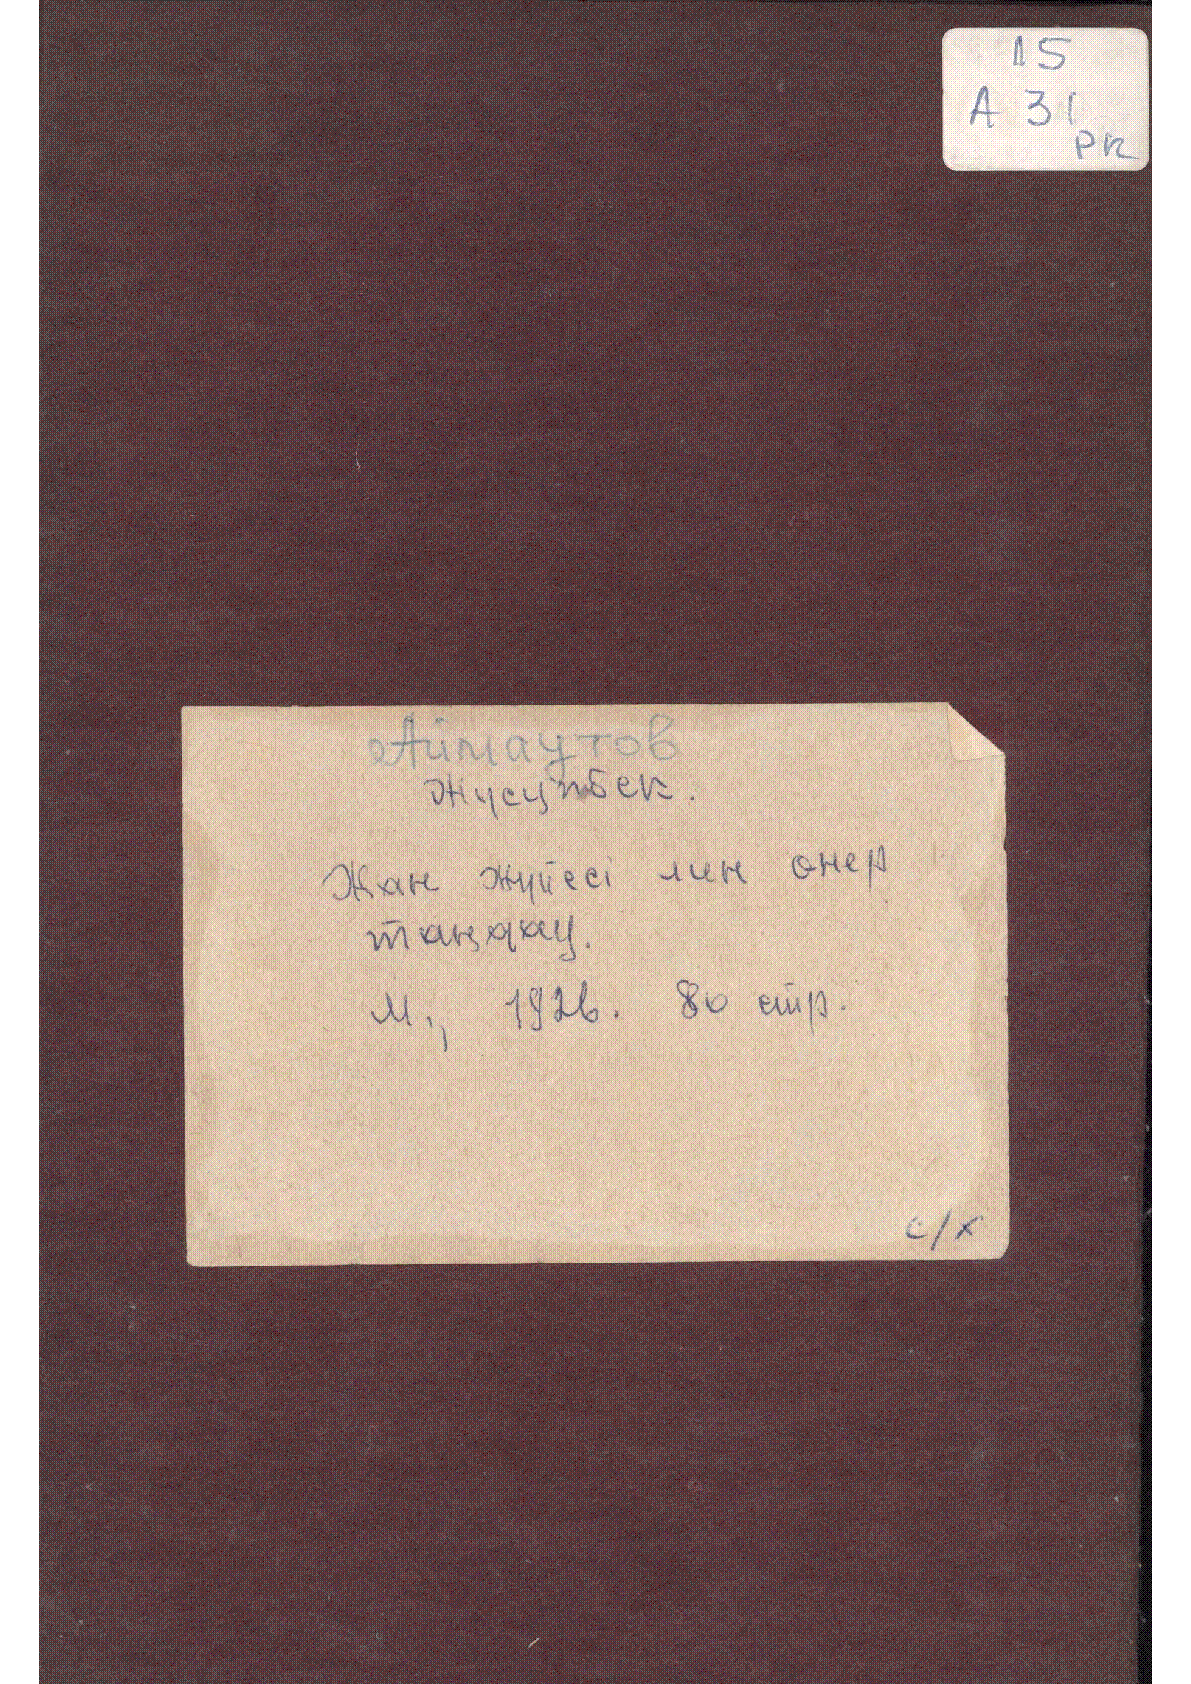 15
А 31
РК
Аймаутов
Жусупбек.
Жан жүйесі мен өнер
таңдау.
М., 1926. 80 стр.
с/х